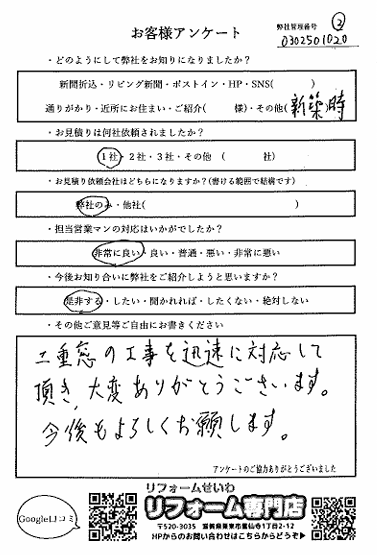 お客様アンケート
弊社管理番号 ②
0302501020
・どのようにして弊社をお知りになりましたか？
新聞折込・リビング新聞・ポストイン・HP・SNS( )
通りがかり・近所にお住まい・ご紹介( 様)・その他(新築時
・お見積りは何社依頼されましたか？
1社・2社・3社・その他 ( 社)
・お見積り依頼会社はどちらになりますか？(書ける範囲で結構です)
弊社のみ・他社( )
・担当営業マンの対応はいかがでしたか？
非常に良い・良い・普通・悪い・非常に悪い
・今後お知り合いに弊社をご紹介しようと思いますか？
是非する・したい・聞かれれば・したくない・絶対しない
・その他ご意見等ご自由にお書きください
二重窓の工事を迅速に対応して
頂き、大変ありがとうございます。
今後もよろしくお願します。
アンケートのご協力ありがとうございました
Google口コミ
リフォームせいわ
リフォーム専門店
〒520-3035 滋賀県栗東市霊仙寺1丁目2-12
HPからのお問い合わせはこちらからどうぞ▶